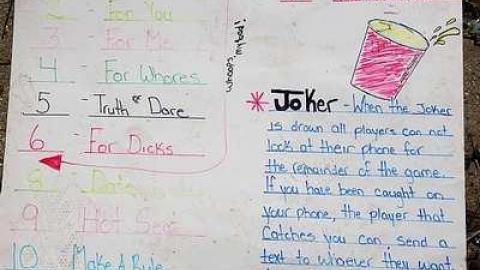 2 - For You
3 - For Me
4 - For Whores
5 - Truth or Dare
6 - For Dicks
8 - Date
9 - Hot Seat
10 Make A Rule
whoops my bad!
* Joker - When the Joker
is drawn all players can not
look at their phone for
the remainder of the game.
If you have been caught on
your phone, the player that
catches you can send a
text to whoever they want